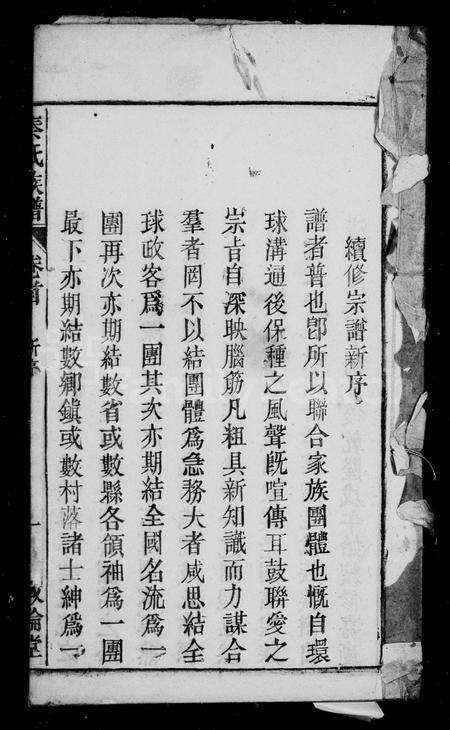 續修宗譜新序
譜者普也卽所以聯合家族團體也慨自環
球溝通後保種之風聲旣喧傳耳鼓聯愛之
宗旨自深映腦筋凡粗具新知識而力謀合
羣者罔不以結團體爲急務大者咸思結全
球政客爲一團其次亦期結全國名流爲一
團再次亦期結數省或數縣各領袖爲一團
最下亦期結數鄉鎮或數村落諸士紳爲一
秦氏族譜 卷首 新序 一 敦倫堂